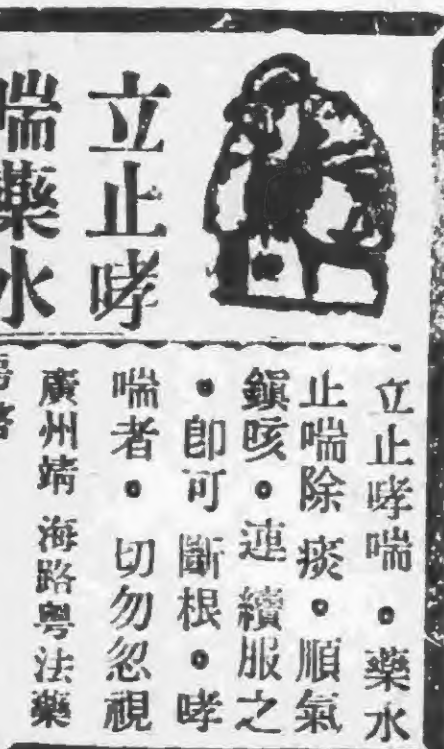 立止哮
喘藥水
立止哮喘•藥水
止喘除痰•順氣
鎮咳•連續服之
•卽可斷根•哮
喘者•切勿忽視
廣州靖海路粤法藥